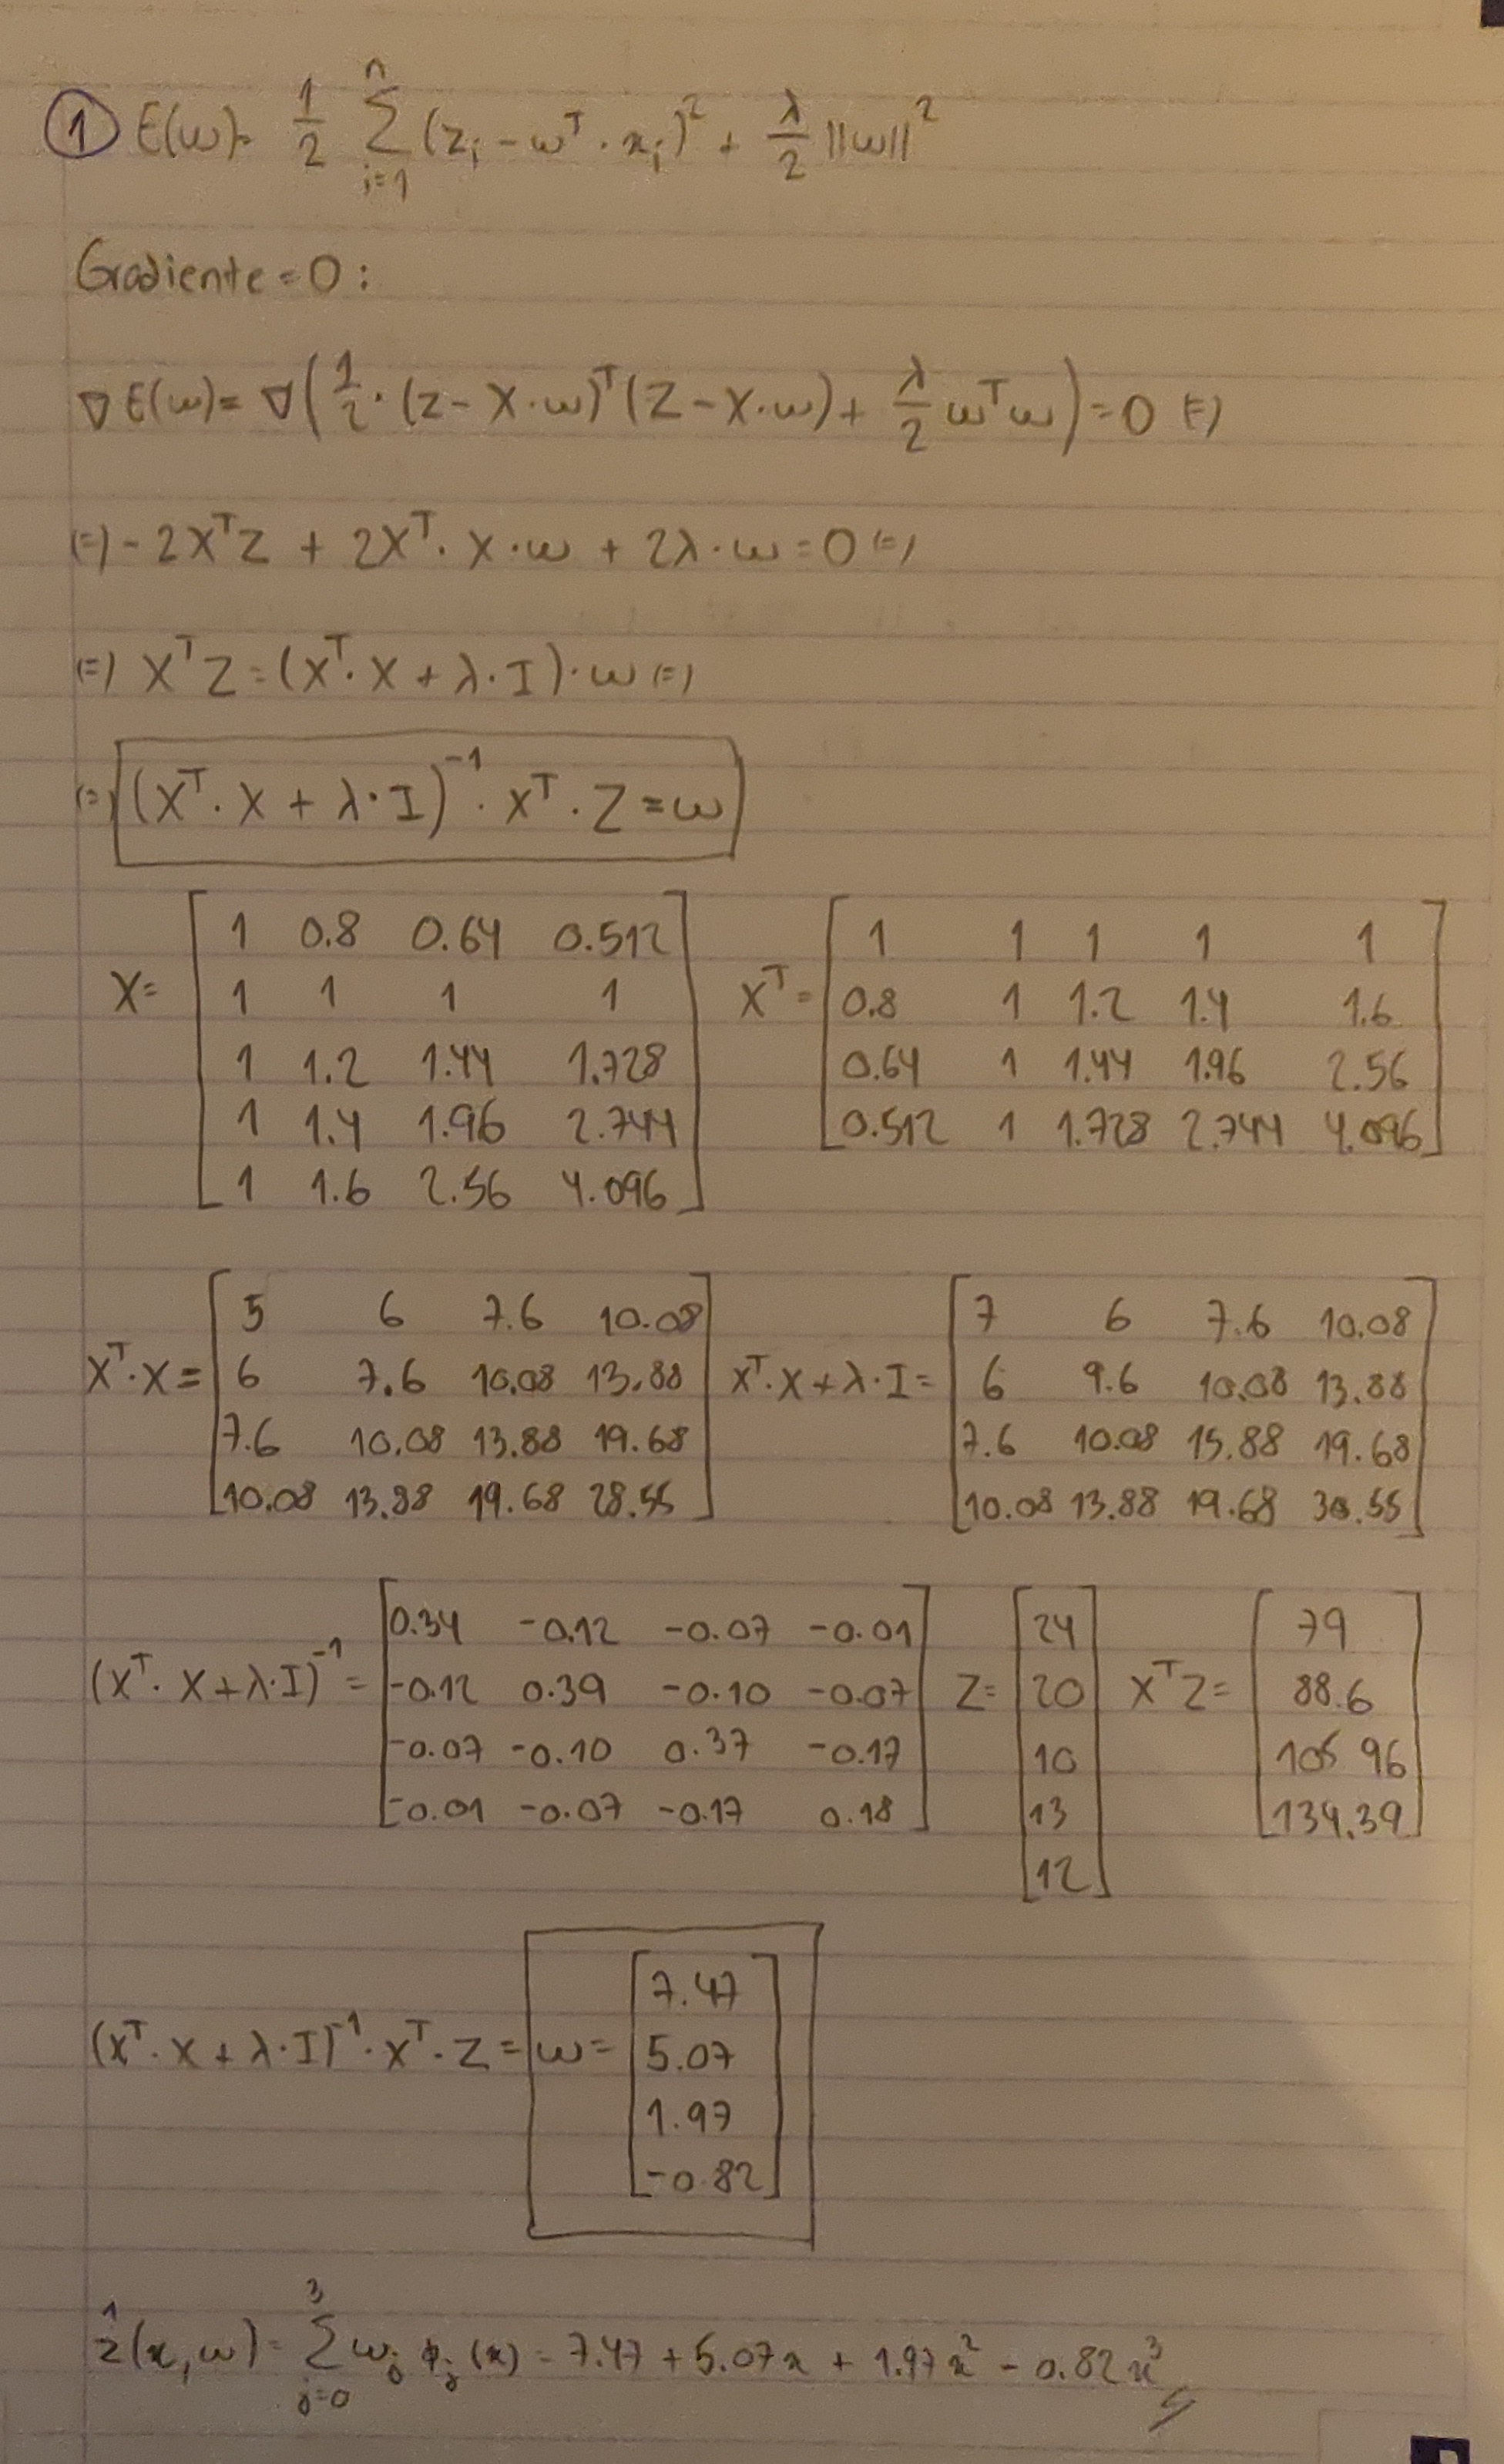 ① E(w) = 1/2 Σ_{i=1}^{n} (z_i - w^T · x_i)^2 + λ/2 ||w||^2
Gradiente = 0 :
∇E(w) = ∇(1/2 · (z - X·w)^T (Z - X·w) + λ/2 w^T w) = 0 (=)
(=) - 2X^T Z + 2X^T · X · w + 2λ · w = 0 (=)
(=) X^T Z = (X^T · X + λ · I) · w (=)
(=) (X^T · X + λ · I)^-1 · X^T · Z = w
X = [1 0.8 0.64 0.512; 1 1 1 1; 1 1.2 1.44 1.728; 1 1.4 1.96 2.744; 1 1.6 2.56 4.096] X^T = [1 1 1 1 1; 0.8 1 1.2 1.4 1.6; 0.64 1 1.44 1.96 2.56; 0.512 1 1.728 2.744 4.096]
X^T · X = [5 6 7.6 10.08; 6 7.6 10.08 13.88; 7.6 10.08 13.88 19.68; 10.08 13.88 19.68 28.55] X^T · X + λ · I = [7 6 7.6 10.08; 6 9.6 10.08 13.88; 7.6 10.08 15.88 19.68; 10.08 13.88 19.68 30.55]
(X^T · X + λ · I)^-1 = [0.34 -0.12 -0.07 -0.01; -0.12 0.39 -0.10 -0.07; -0.07 -0.10 0.37 -0.17; -0.01 -0.07 -0.17 0.18] Z = [24; 20; 10; 13; 12] X^T Z = [79; 88.6; 105.96; 134.39]
(X^T · X + λ · I)^-1 · X^T · Z = w = [7.47; 5.07; 1.97; -0.82]
ẑ(x,w) = Σ_{j=0}^{3} w_j ϕ_j (x) = 7.47 + 5.07x + 1.97x^2 - 0.82x^3